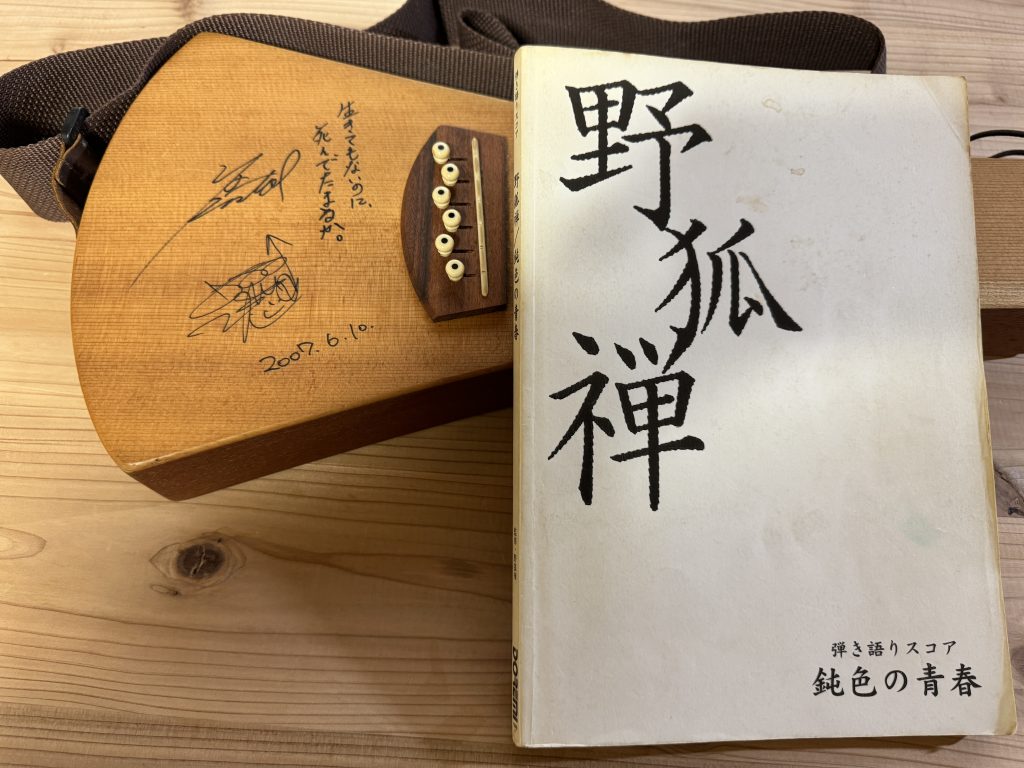 生きてもないのに、
死んでたまるか。
2007.6.10.
野狐禅
弾き語りスコア
鈍色の青春
野狐禅/鈍色の青春